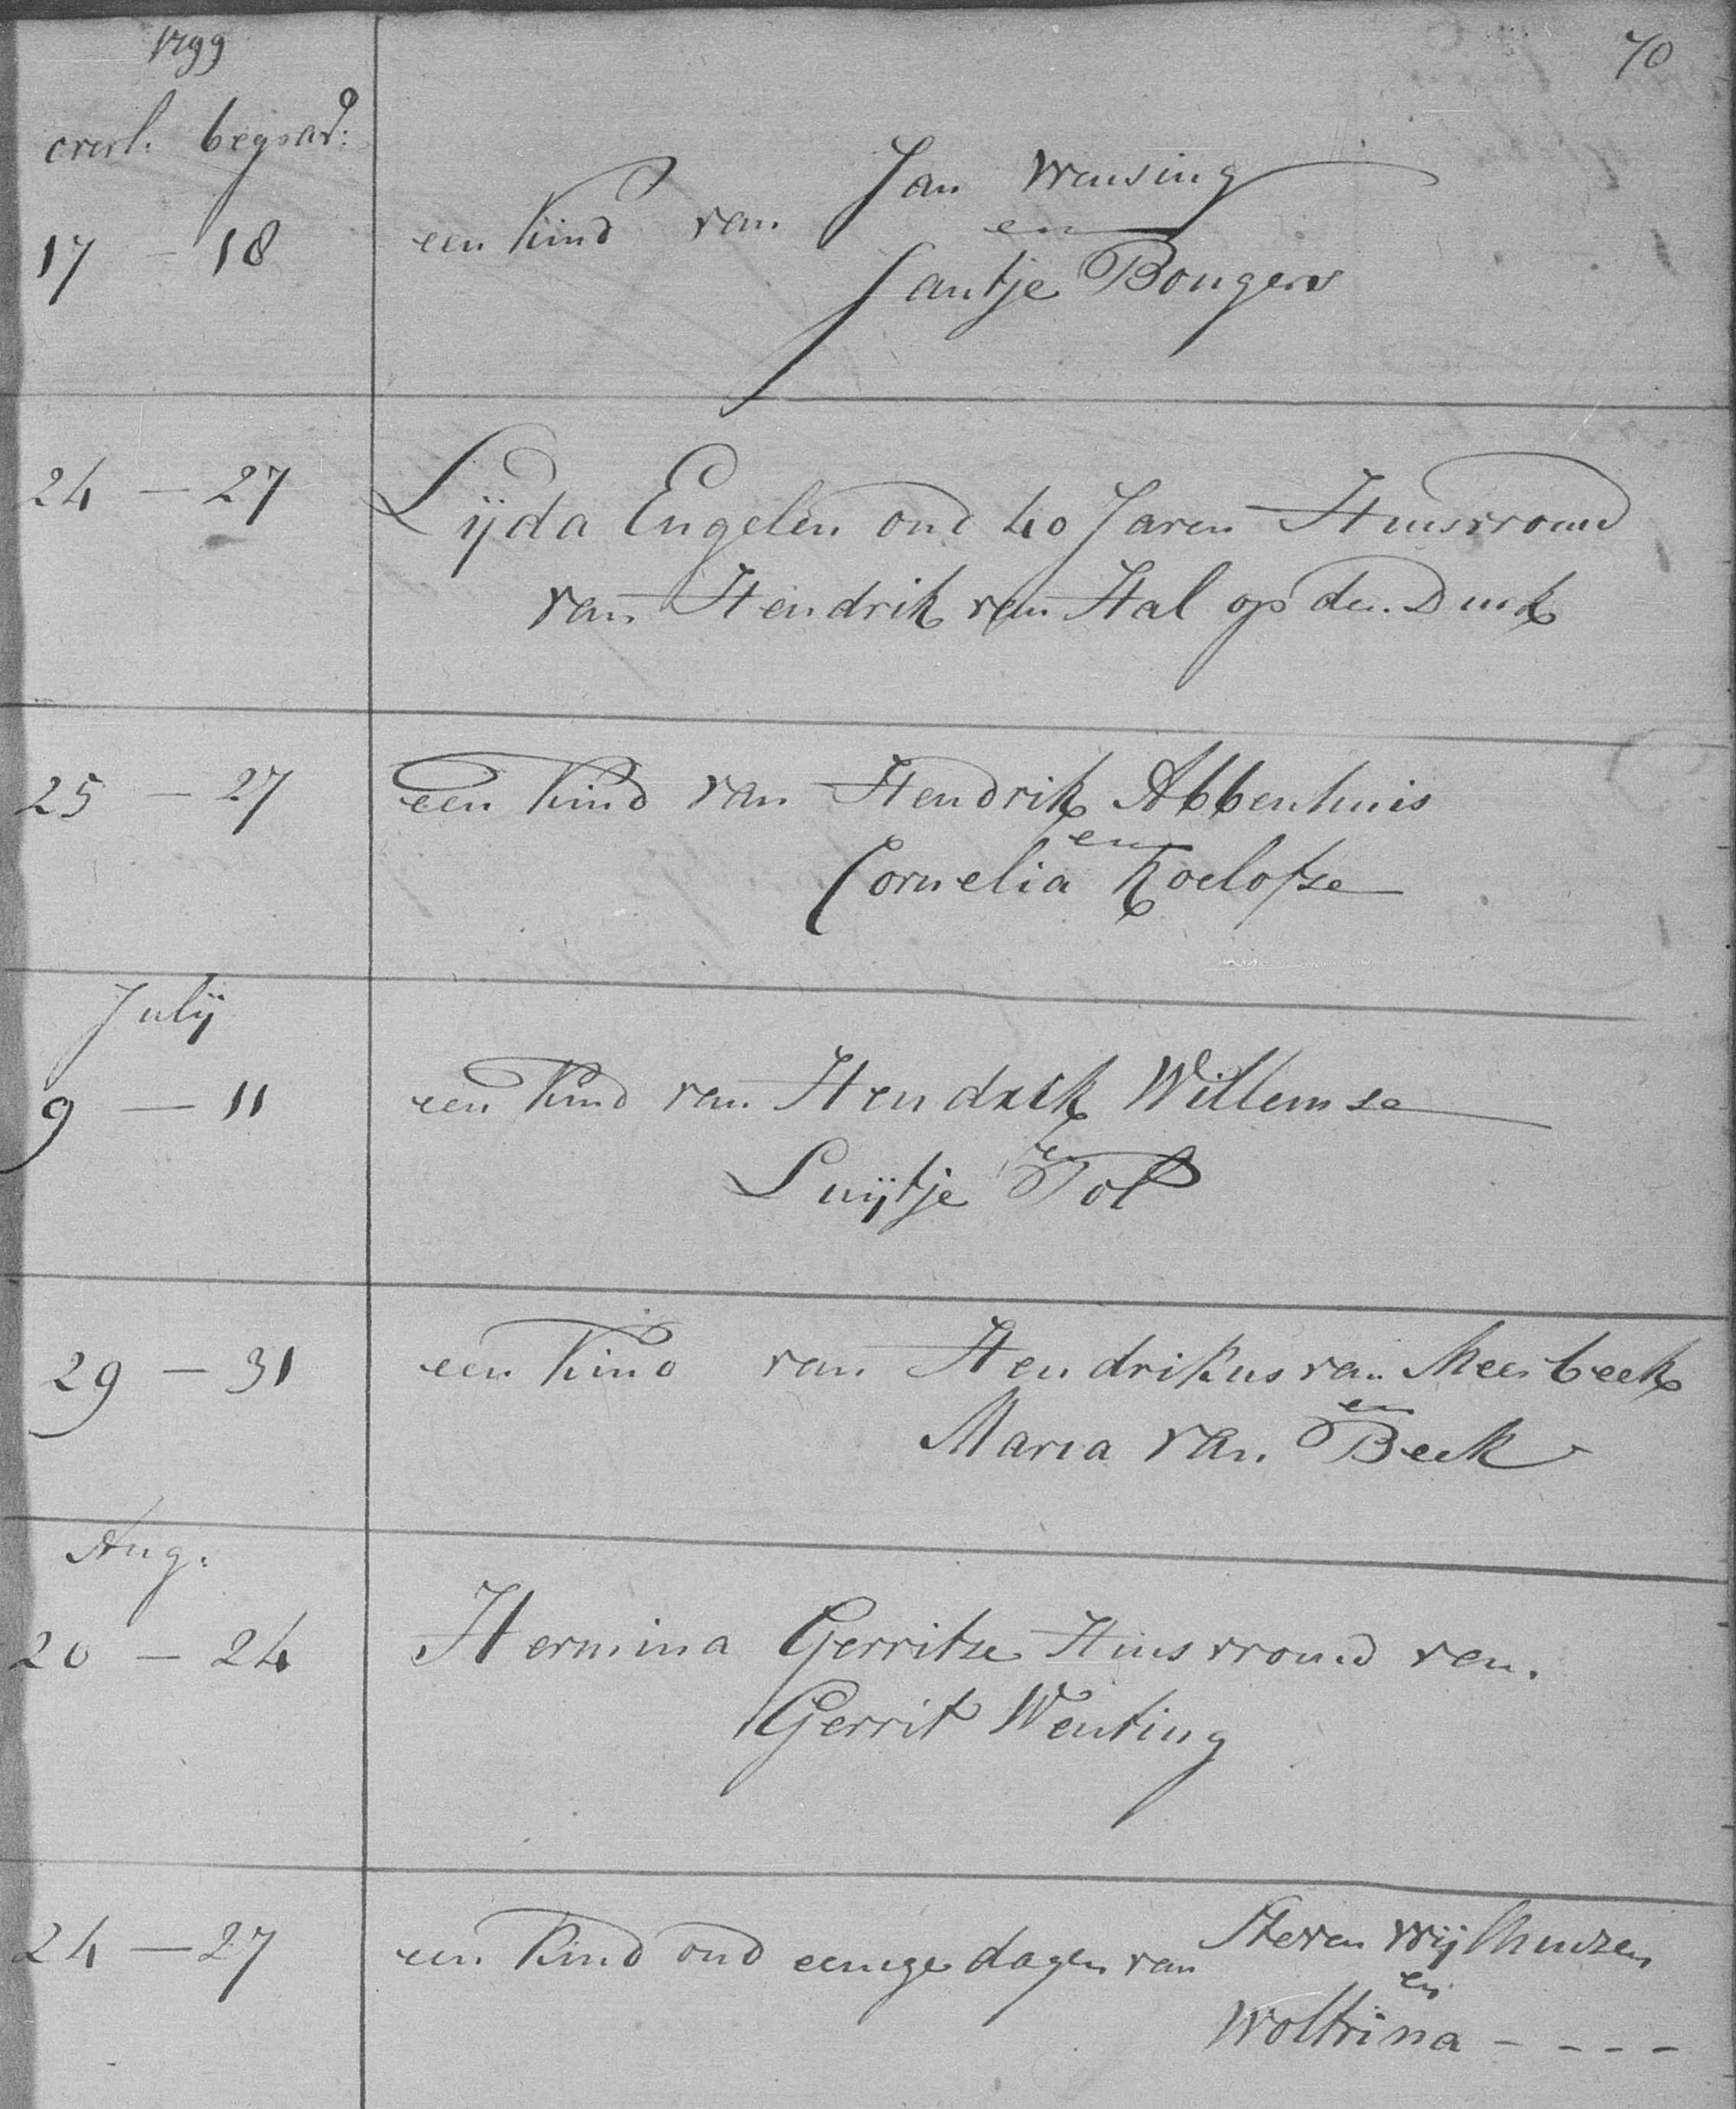 1799
70
overl. begrav:
Jan Wensing
17 - 18 een kind van
en
Jantje Bongers
24 - 27 Lijda Engelen oud 40 Jaren Huisvrouw
van Hendrik van Hal op den Duck
25 - 27 een kind van Hendrik Abbenhuis
en
Cornelia Roelofse
Julij
9 - 11 een kind van Hendrik Willemse
en
Luijtje Tol
29 - 31 een kind van Hendrikus van Meerbeek
en
Maria van Beek
Aug.
20 - 24 Hermina Gerritse Huisvrouw van
Gerrit Wenting
24 - 27 een kind oud eenige dagen van Steven Wijlhuizen
en
Woltrina - - - -